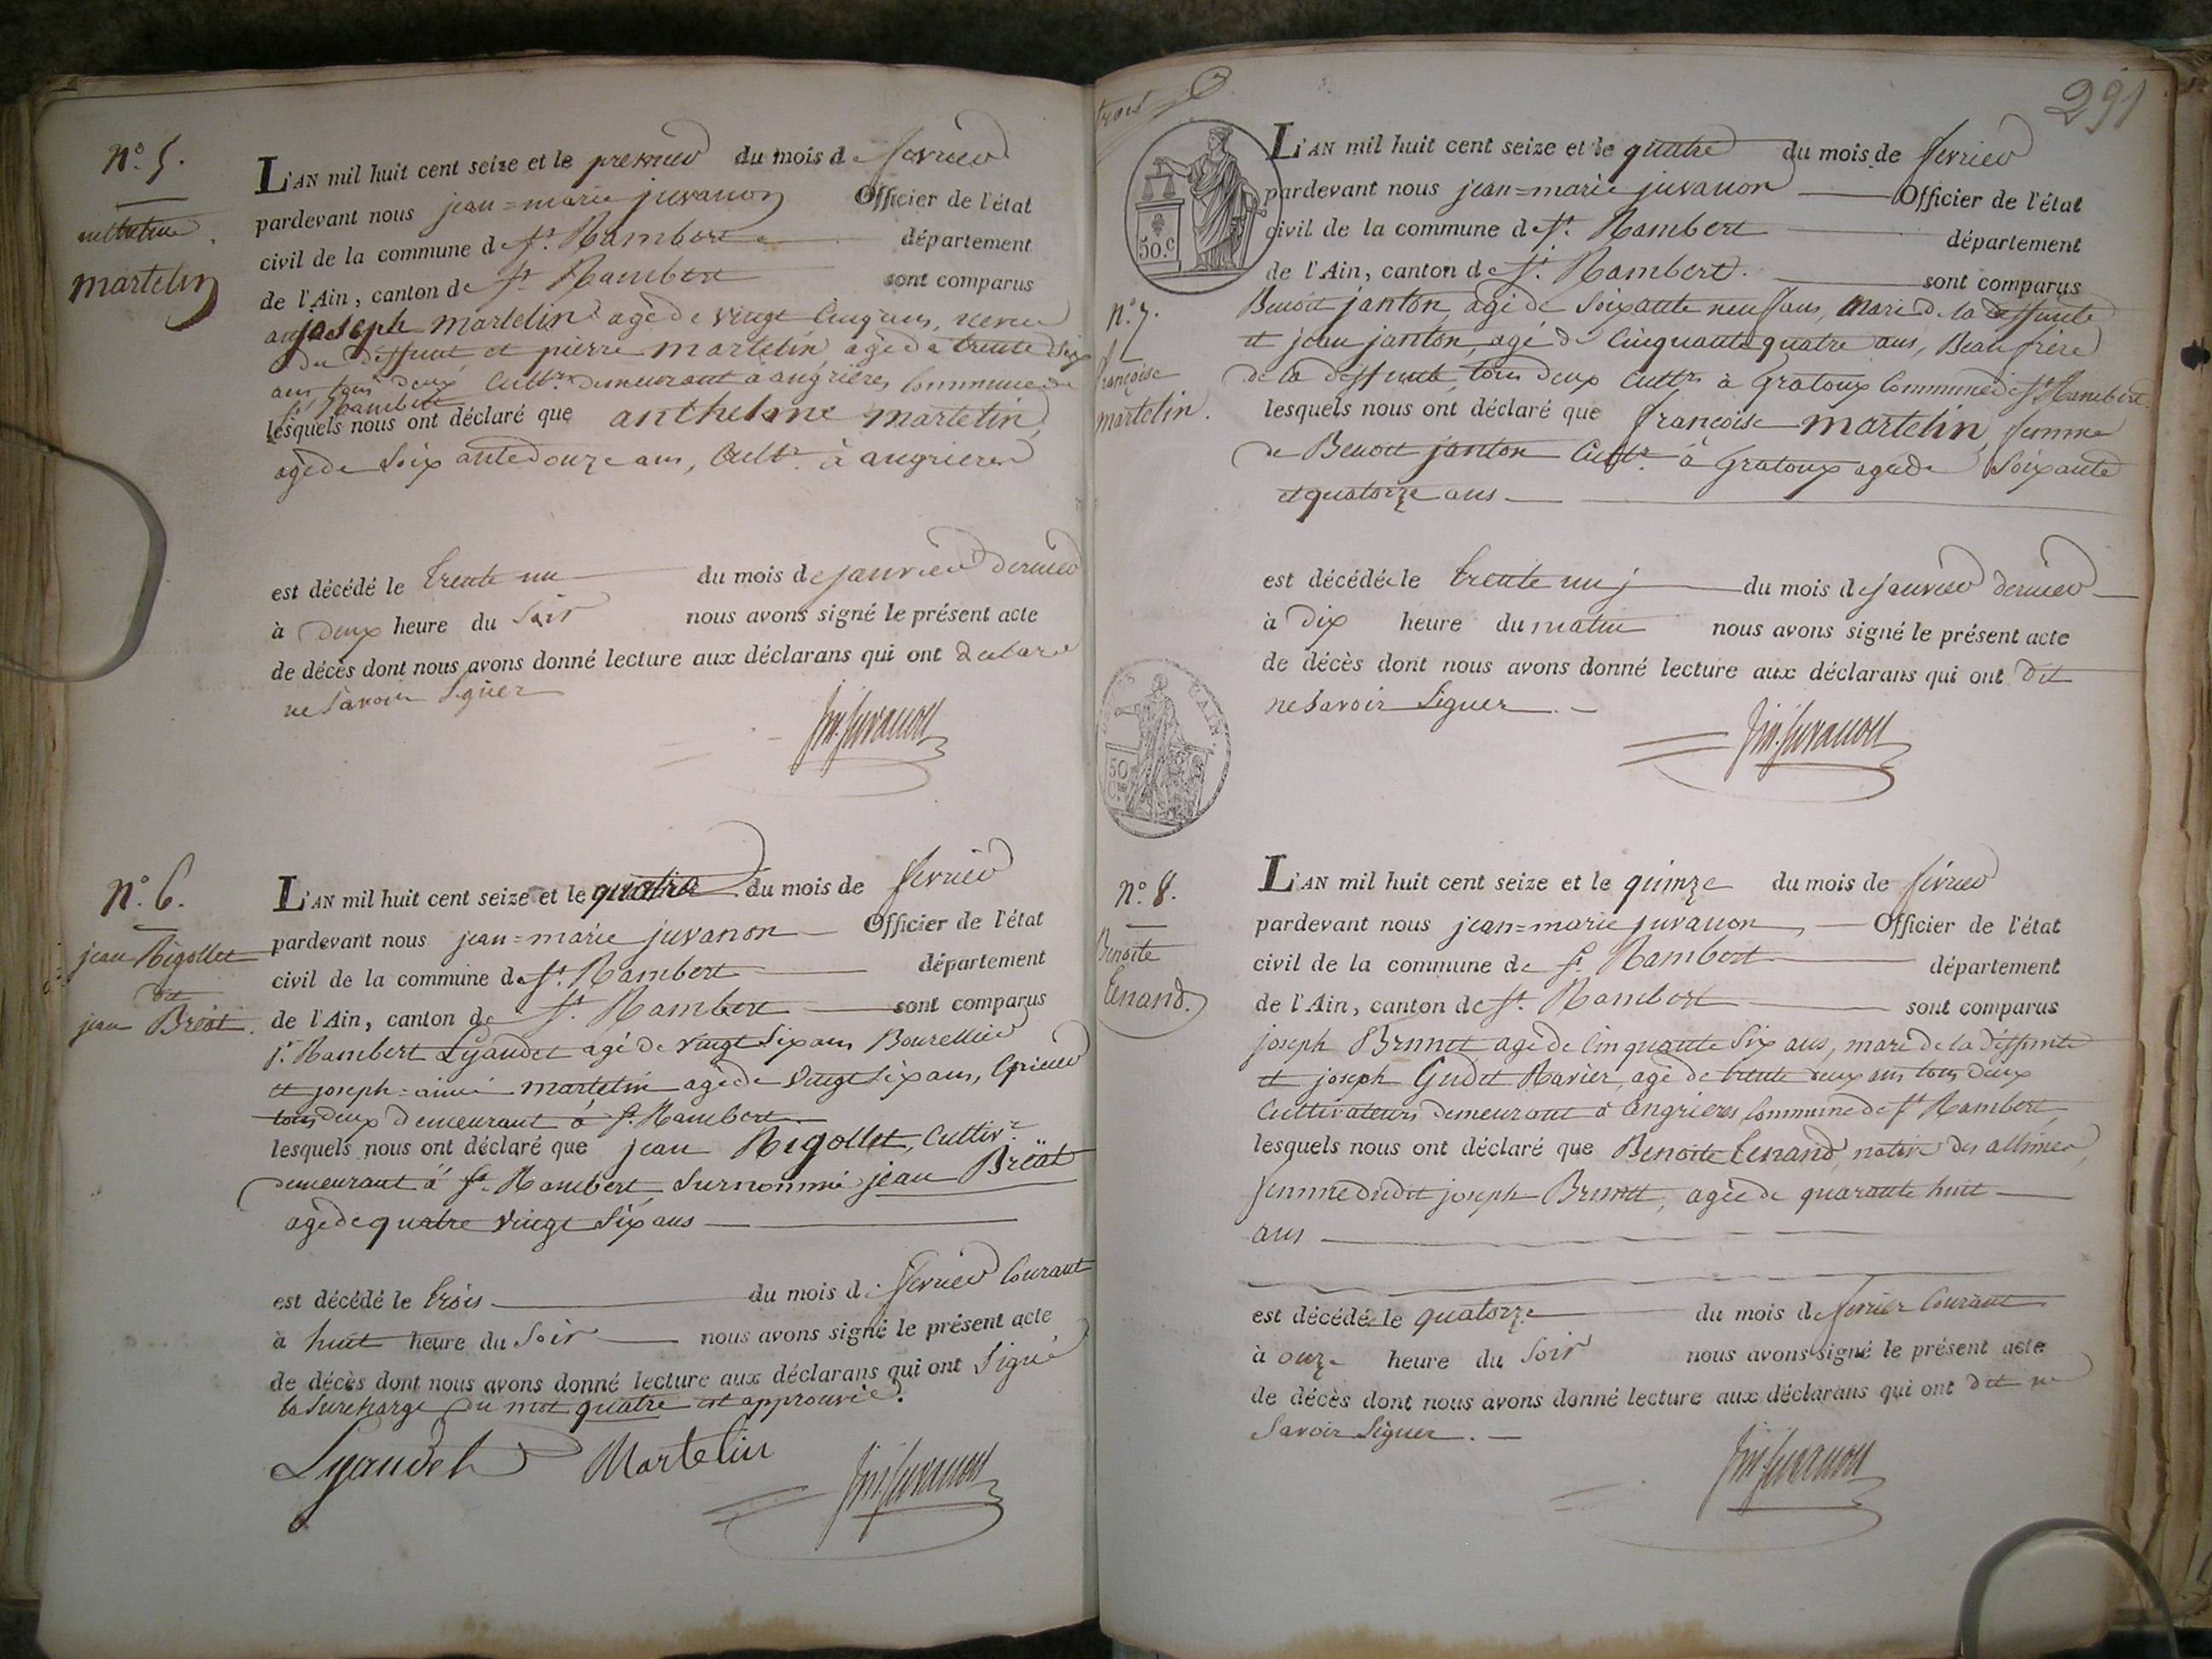 n.° 5.
martelin
L'AN mil huit cent seize et le premier du mois de fevrier
pardevant nous jean=marie juvanon Officier de l'état
civil de la commune de St. Rambert département
de l'Ain, canton de St. Rambert sont comparus
joseph martelin agé de vingt Cinq ans, neveu
du deffunt et pierre martelin agé de trente six
ans tous deux Cultrs demeurant à angrieres Commune de
St Rambert
lesquels nous ont déclaré que anthelme martelin,
agé de Soixante douze ans, Cultr. à angrieres
est décédé le trente un du mois de janvier dernier
à Deux heure du Soir nous avons signé le présent acte
de décès dont nous avons donné lecture aux déclarans qui ont declaré
ne Savoir Signer
jm. juvanon
n.° 6.
jean Rigollet
dit
jean Brëat.
L'AN mil huit cent seize et le quatre du mois de fevrier
pardevant nous jean=marie juvanon Officier de l'état
civil de la commune de St. Rambert département
de l'Ain, canton de St. Rambert sont comparus
St. Rambert Lyaudet agé de vingt Six ans Bourellier
et joseph=aimé martelin agé de vingt six ans, Epicier
tous deux demeurant à St. Rambert
lesquels nous ont déclaré que jean Rigollet, Cultivr.
demeurant à St. Rambert, Surnommé jean Brëat
agé de quatre vingt Six ans
est décédé le trois du mois de fevrier Courant
à huit heure du Soir nous avons signé le présent acte
de décès dont nous avons donné lecture aux déclarans qui ont Signé
la Surcharge du mot quatre est approuvée.
Lyaudet Martelin jm. juvanon
trois
291
50.c
L'AN mil huit cent seize et le quatre du mois de fevrier
pardevant nous jean=marie juvanon Officier de l'état
civil de la commune de St. Rambert département
de l'Ain, canton de St. Rambert. sont comparus
n.° 7.
françoise
martelin.
Benoit janton, agé de Soixante neuf ans, mari de la deffunte
et jean janton, agé de Cinquante quatre ans, Beau frère
de la deffunte, tous deux Cultrs à Gratoux Commune de St. Rambert
lesquels nous ont déclaré que françoise martelin, femme
de Benoit janton Cultr. à Gratoux agée de Soixante
et quatorze ans
est décédée le trente un du mois de janvier dernier
à Dix heure du matin nous avons signé le présent acte
de décès dont nous avons donné lecture aux déclarans qui ont dit
ne Savoir Signer.
jm. juvanon
50
n.° 8.
Benoite
Tenand.
L'AN mil huit cent seize et le quinze du mois de fevrier
pardevant nous jean=marie juvanon, Officier de l'état
civil de la commune de St. Rambert département
de l'Ain, canton de St. Rambert sont comparus
joseph Brunet agé de Cinquante Six ans, mari de la deffunte
et joseph Gudet Ravier, agé de trente deux ans tous deux
Cultivateurs demeurant à angrieres, Commune de St Rambert,
lesquels nous ont déclaré que Benoite Tenand, native des allimes,
femme dudit joseph Brunet, agée de quarante huit
ans
est décédée le quatorze du mois de fevrier Courant
à onze heure du Soir nous avons signé le présent acte
de décès dont nous avons donné lecture aux déclarans qui ont dit ne
Savoir Signer.
jm. juvanon